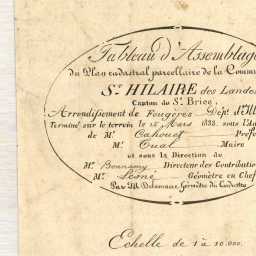 Tableau d'Assemblage
du Plan cadastral parcellaire de la Comm
St. HILAIRE des Landes
Canton de St. Brice,
Arrondissement de Fougères Dépt. d'Il
Terminé sur le terrein le 15 Mars 1833. sous l'A
de Mr. Cahouet Préf
Mr. Oual Maire
et sous la Direction de
Mr. Directeur des Contributio
Mr. Lesné Géomètre en Chef
Par Mr. Delamare Géomètre du Cadastre
Echelle de 1 à 10.000.